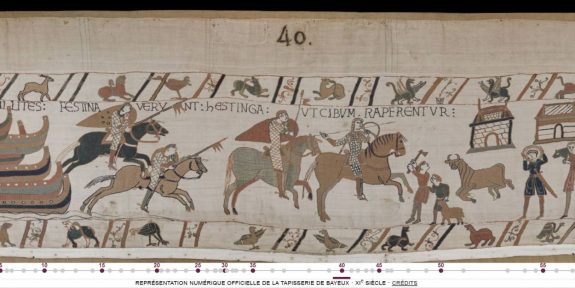 40.
LITES: FESTINA VERVNT: hESTINGA: VT CIBVM. RAPERENTVR:
5 10 15 20 25 30 35 40 45 50 55
REPRÉSENTATION NUMÉRIQUE OFFICIELLE DE LA TAPISSERIE DE BAYEUX · XIᵉ SIÈCLE · CRÉDITS